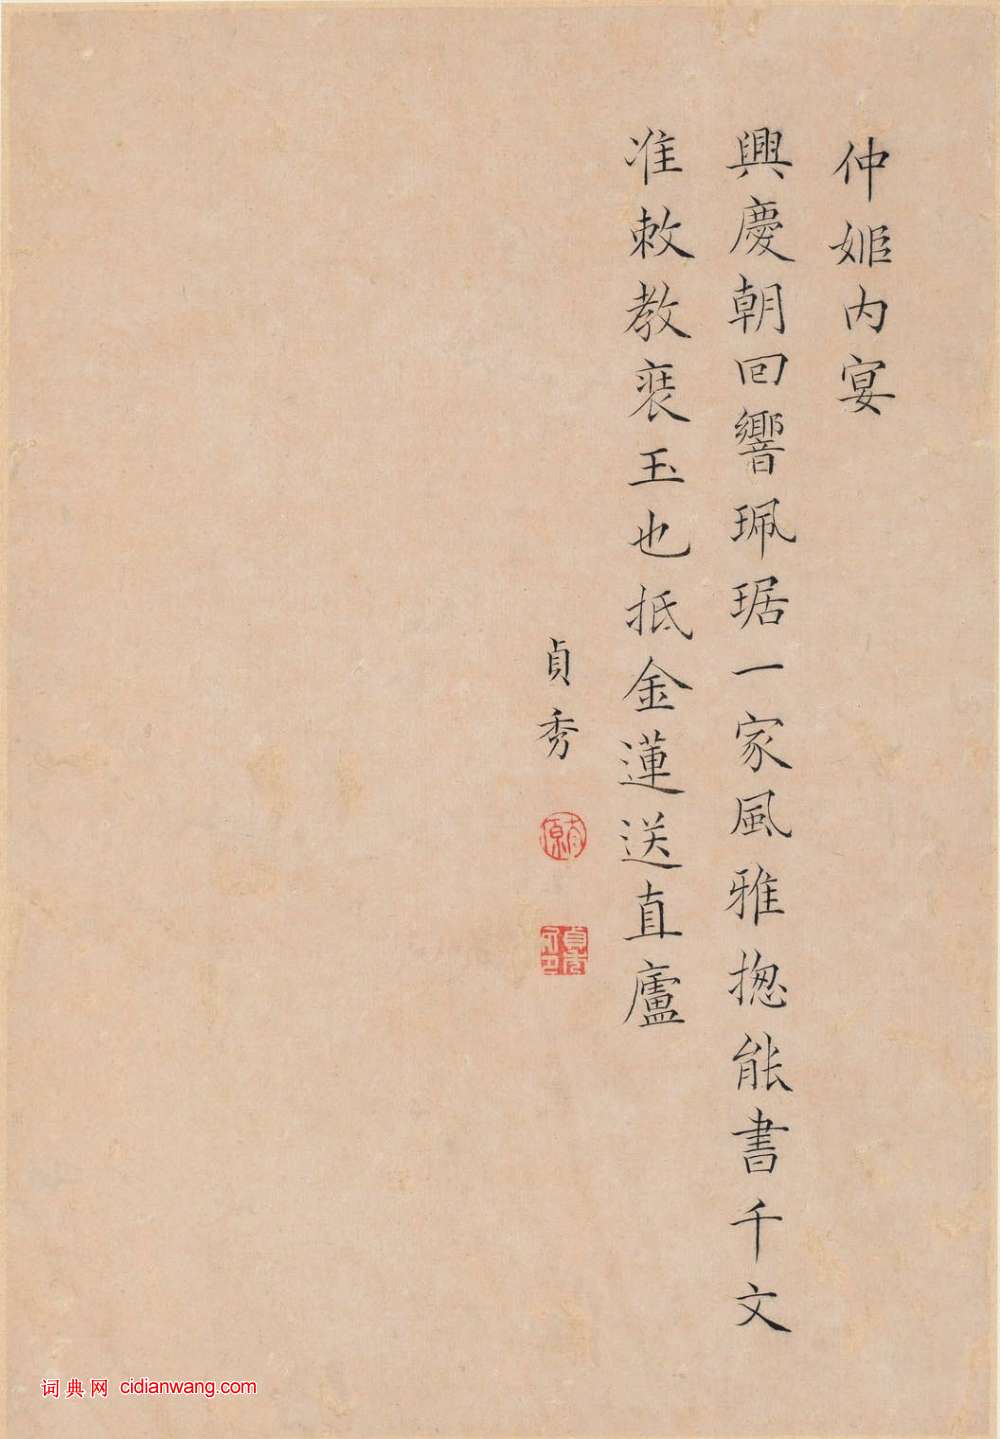 仲姬内宴
興慶朝回響珮琚一家風雅摠能書千文
准敕教裝玉也抵金蓮送直廬
貞秀
词典网 cidianwang.com